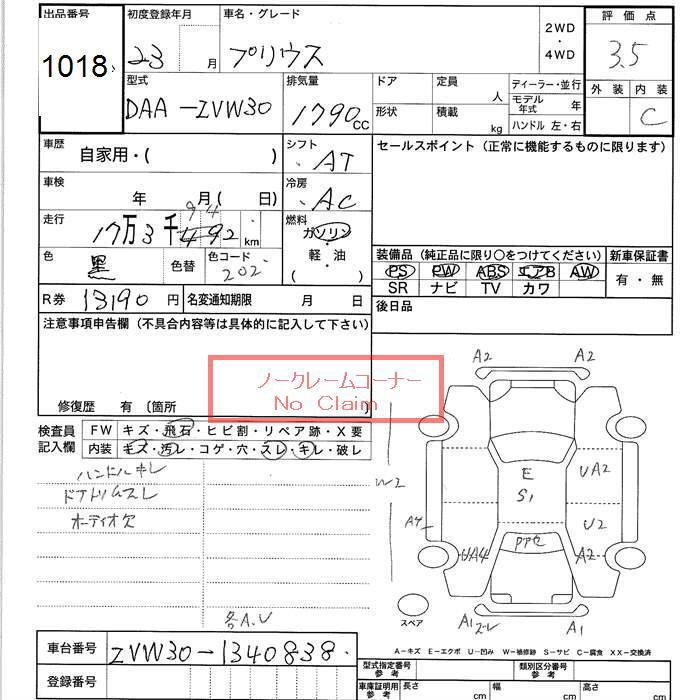 出品番号 初度登録年月 車名・グレード 2WD・4WD 評価点
1018 23 月 プリウス 3.5
型式 排気量 ドア 定員 人 ディーラー・並行 外装 内装
DAA-ZVW30 1790 CC 形状 積載 kg モデル年式 年 C
ハンドル 左・右
車歴 自家用・( ) シフト AT セールスポイント(正常に機能するものに限ります)
車検 年 月( 日) 冷房 AC
走行 17万3千 492 km 燃料 ガソリン・軽油 ( )
94
色 黒 色替 色コード 202
装備品(純正品に限り○をつけてください) 新車保証書
PS PW ABS エアB AW 有・無
SR ナビ TV カワ
R券 13190 円 名変通知期限 月 日 後日品
注意事項申告欄(不具合内容等は具体的に記入して下さい)
ノークレームコーナー
No Claim
修復歴 有 〔箇所 〕
検査員記入欄 FW キズ・飛石・ヒビ割・リペア跡・X要
内装 キズ・汚レ・コゲ・穴・スレ・キレ・破レ
ハンドルキレ
ドアトリムスレ
オーディオ欠
各A.U
A2 A2
E
S1
UA2
W2
A4 U2
UA4 A2
スペア A1 A1
A-キズ E-エクボ U-凹み W-補修跡 S-サビ C-腐食 XX-交換済
車台番号 ZVW30-1340838
登録番号
型式指定番号 参考 類別区分番号 参考
車庫証明用 参考 長さ cm 幅 cm 高さ cm